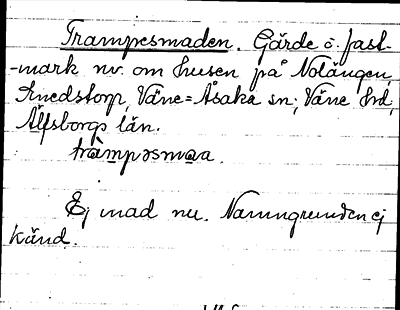 Trampesmaden. Gärde o. fast-
-mark nv. om husen på Notängen,
Knedstorp, Väne=Åsaka sn, Väne hd,
Älfsborgs län.
tràmpəsmaa.
Ej mad nu. Namngrunden ej
känd.